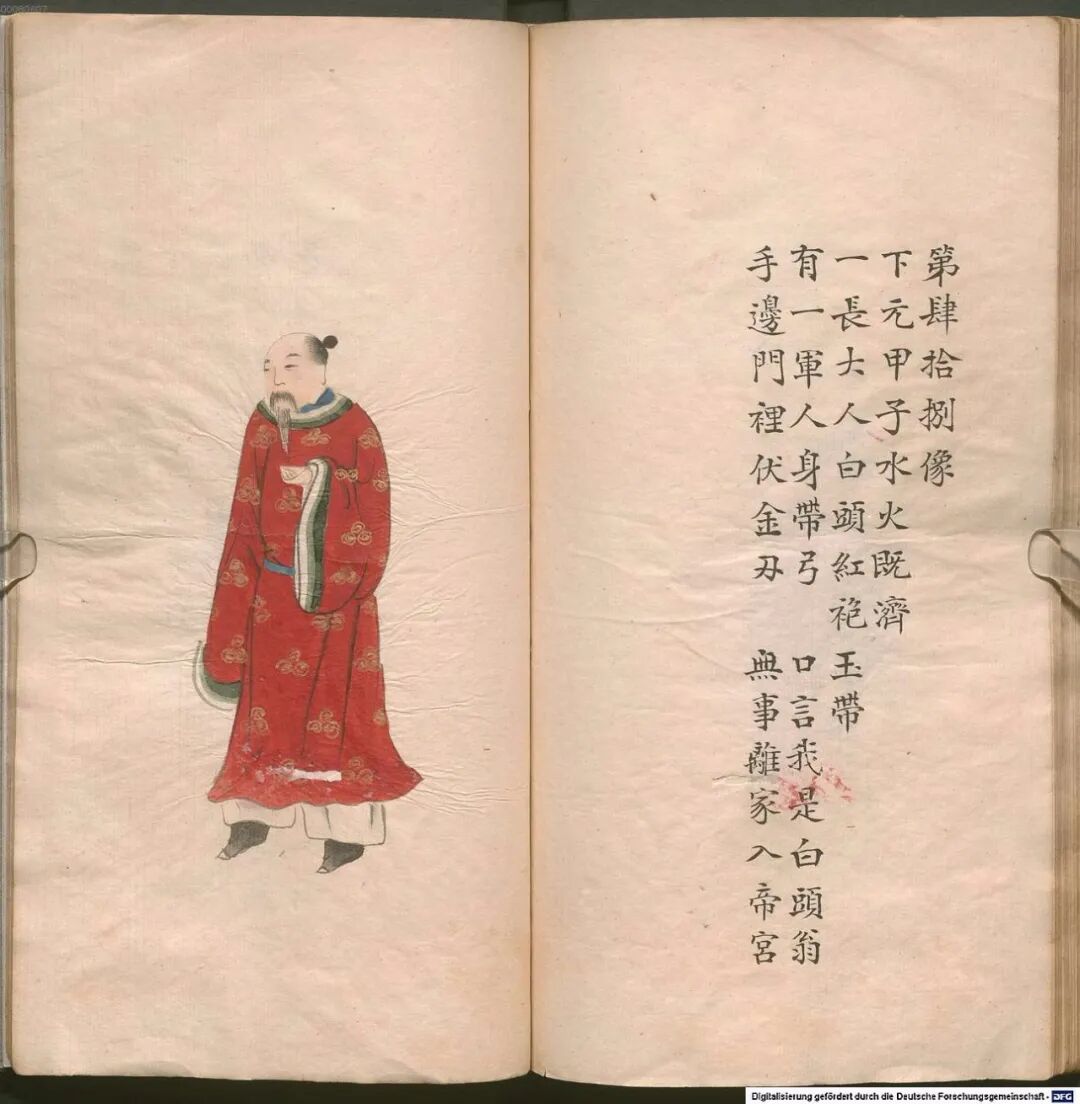 第肆拾捌像
下元甲子水火既濟
一長大人白頭紅袍玉帶
有一軍人身帶弓 口言我是白頭翁
手邊門裡伏金刃 無事離家入帝宮
00080607
Digitalisierung gefördert durch die Deutsche Forschungsgemeinschaft - DFG